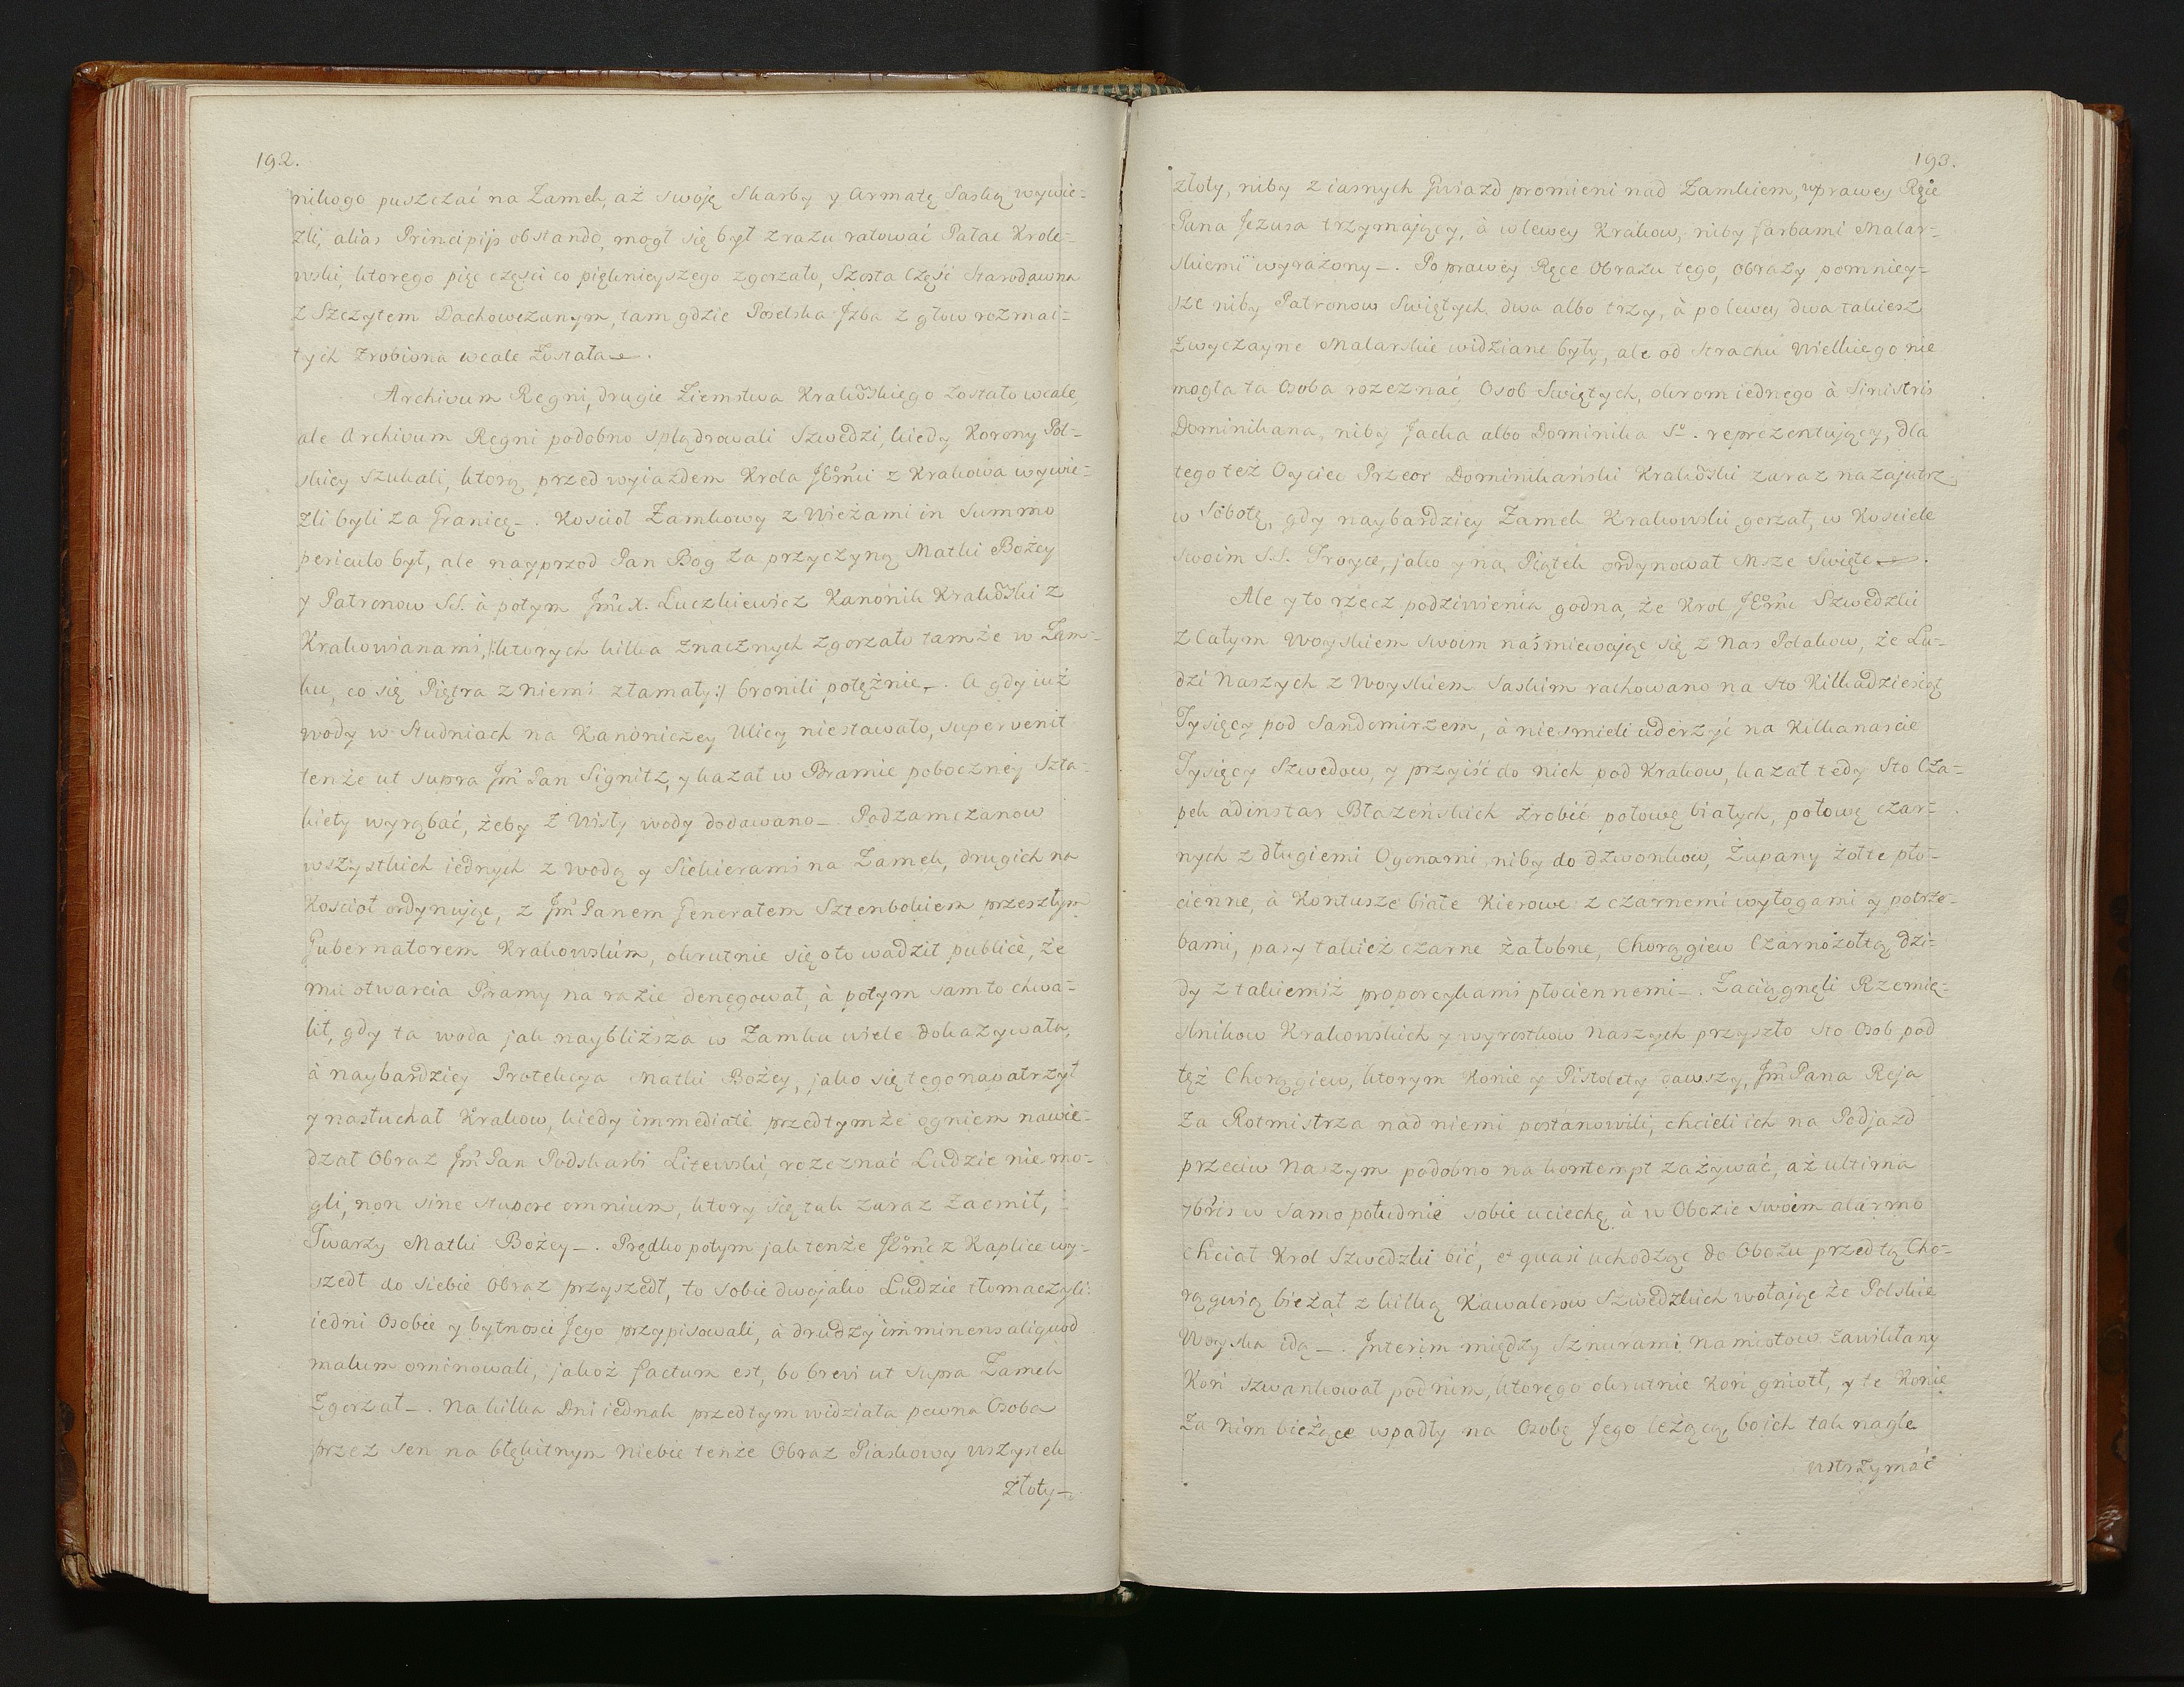 192.
nikogo puszczać na Zamek, aż swoję Skarby y Armatę Saską wywie-
zli, alias Principijs obstando, mogł się był zrazu ratować Pałac Krole-
wski, ktorego pięc części co pięknieyszego zgorzało, Szosta Część Starodawna
z Szczytem Dachowczanym, tam gdzie Poselska Jzba z głow rozmai-
tych zrobiona wcale została.
Archivum Regni, drugie Ziemstwa Krakowskiego zostało wcale,
ale Archivum Regni podobno splądrowali Szwedzi, kiedy Korony Pol-
skiey szukali, ktorą przed wyiazdem Krola JEomci z Krakowa wywie-
zli byli za Granicę. Kościoł Zamkowy z Wieżami in summo
periculo był, ale nayprzod Pan Bog za przyczyną Matki Bożey
y Patronow SS. à potym Jmć X. Łuczkiewicz Kanonik Krakowski z
Krakowianami, /:ktorych kilka znacznych zgorzało tamże w Zam-
ku, co się Piętra z niemi złamały:/ bronili potężnie. A gdy iuż
wody w Studniach na Kanoniczey Ulicy niestawało, supervenit
tenże ut supra Jmć Pan Signitz, y kazał w Bramie poboczney Szta-
kiety wyrąbać, żeby z Wisły wody dodawano. Podzamczanow
wszystkich iednych z wodą y Siekierami na Zamek, drugich na
Kościoł ordynując, z Jmć Panem Generałem Sztenbokiem przeszłym
Gubernatorem Krakowskim, okrutnie się o to wadził publicè, że
mu otwarcia Bramy na razie denegował, à potym sam to chwa-
lił, gdy ta woda jak naybliższa w Zamku wiele dokazywała,
à naybardziey Protekcya Matki Bożey, jako się tego napatrzył
y nasłuchał Krakow, kiedy immediatè przed tymże ogniem nawie-
dzał Obraz Jmć Pan Podskarbi Litewski, rozeznać Ludzie nie mo-
gli, non sine stupore omnium, ktory się tak zaraz zacmił,
Twarzy Matki Bożey. Prędko potym jak tenże JEomć z Kaplice wy-
szedł do siebie Obraz przyszedł, to sobie dwojako Ludzie tłomaczyli:
iedni Osobie y bytnosci Jego przypisowali, à drudzy imminens aliquod
malum ominowali, jakoż factum est, bo brevi ut supra Zamek
Zgorzał. Na kilka Dni iednak przedtym widziała pewna Osoba
przez sen na błękitnym Niebie tenże Obraz Piaskowy wszystek
złoty
193.
złoty, niby z iasnych Gwiazd promieni nad Zamkiem, w prawey Ręie
Pana Jezusa trzymający, à w lewey Krakow, niby farbami Malar-
skiemi wyrażony. Po prawey Ręce Obrazu tego, Obrazy pomniey-
sze niby Patronow Swiętych dwa albo trzy, à po lewey dwa takiesz
zwyczayne Malarskie widziane były, ale od strachu Wielkiego nie
mogła ta Osoba rozeznać Osob Swiętych, okrom iednego à Sinistris
Dominikana, niby Jacka albo Dominika So. reprezentujący, dla
tego też Oyciec Przeor Dominikański Krakowski zaraz nazajutrz
w Sobotę, gdy naybardziey Zamek Krakowski gorzał, w Kosciele
swoim S.S. Troyce, jako y na Piątek ordynował Msze Swięte.
Ale y to rzecz podziwienia godna, że Krol JEomć Szwedzki
z całym Woyskiem swoim naśmiewając się z Nas Polakow, że Lu-
dzi Naszych z Woyskiem Saskim rachowano na sto Kilkadziesiąt
Tysięcy pod Sandomirzem, à niesmieli uderzyć na Kilkanascie
Tysięcy Szwedow, y przyiść do nich pod Krakow, kazał tedy sto Cza-
pek ad instar Błazeńskich zrobić połowę białych, połowę czar-
nych z długiemi Ogonami niby do dzwonkow, Żupany żołte płó-
cienne, à Kontusze białe Kierowe z czarnemi wyłogami y potrze-
bami, pasy takież czarne żałobne, Chorągiew Czarnożołtą, dzi-
dy z takiemiż proporczykami płociennemi. Zaciągnęli Rzemię-
slnikow Krakowskich y wyrostkow Naszych przyszło sto Osob pod
tęż Chorągiew, ktorym Konie y Pistolety dawszy, Jmć Pana Reja
za Rotmistrza nad niemi postanowili, chcieli ich na Podjazd
przeciw Naszym podobno na kontempt zażywać, aż ultima
7bris w samo południe sobie uciechę à w Obozie swoim alarmo
chciał Krol Szwedzki bić, et quasi uchodząc do Obozu przed tą Cho-
rągwią bieżał z kilką Kawalerow Szwedzkich wołając że Polskie
Woyska idą. Interim między Sznurami namiotow zawikłany
Koń szwankował pod nim, ktorego okrutnie Koń gniotł, y te Konie
za nim bieżące wpadły na Osobę Jego leżącą, bo ich tak nagle
wstrzymać